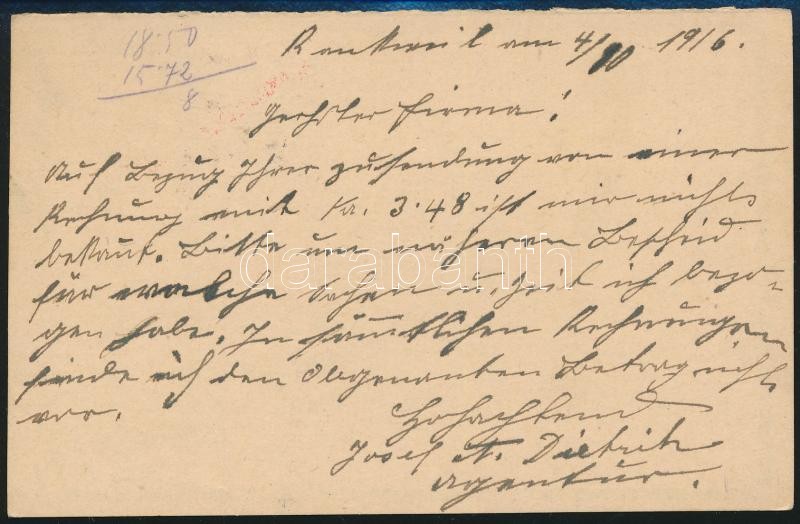 18·50
15·72
8
Rankweil am 4/10 1916.
Geehrter Firma!
Auf Bezug Ihrer Zusendung von einer
Rechnung mit Kr. 3·48 ist mir nichts
bekant. Bitte um näheren Bescheid
für welche Sachen u. Zeit ich bezo-
gen habe. In sämtlichen Rechnungen
finde ich den Obgenanten Betrag nicht
vor.
Hochachtend
Josef A. Dietrich
Agentur.
darabanth